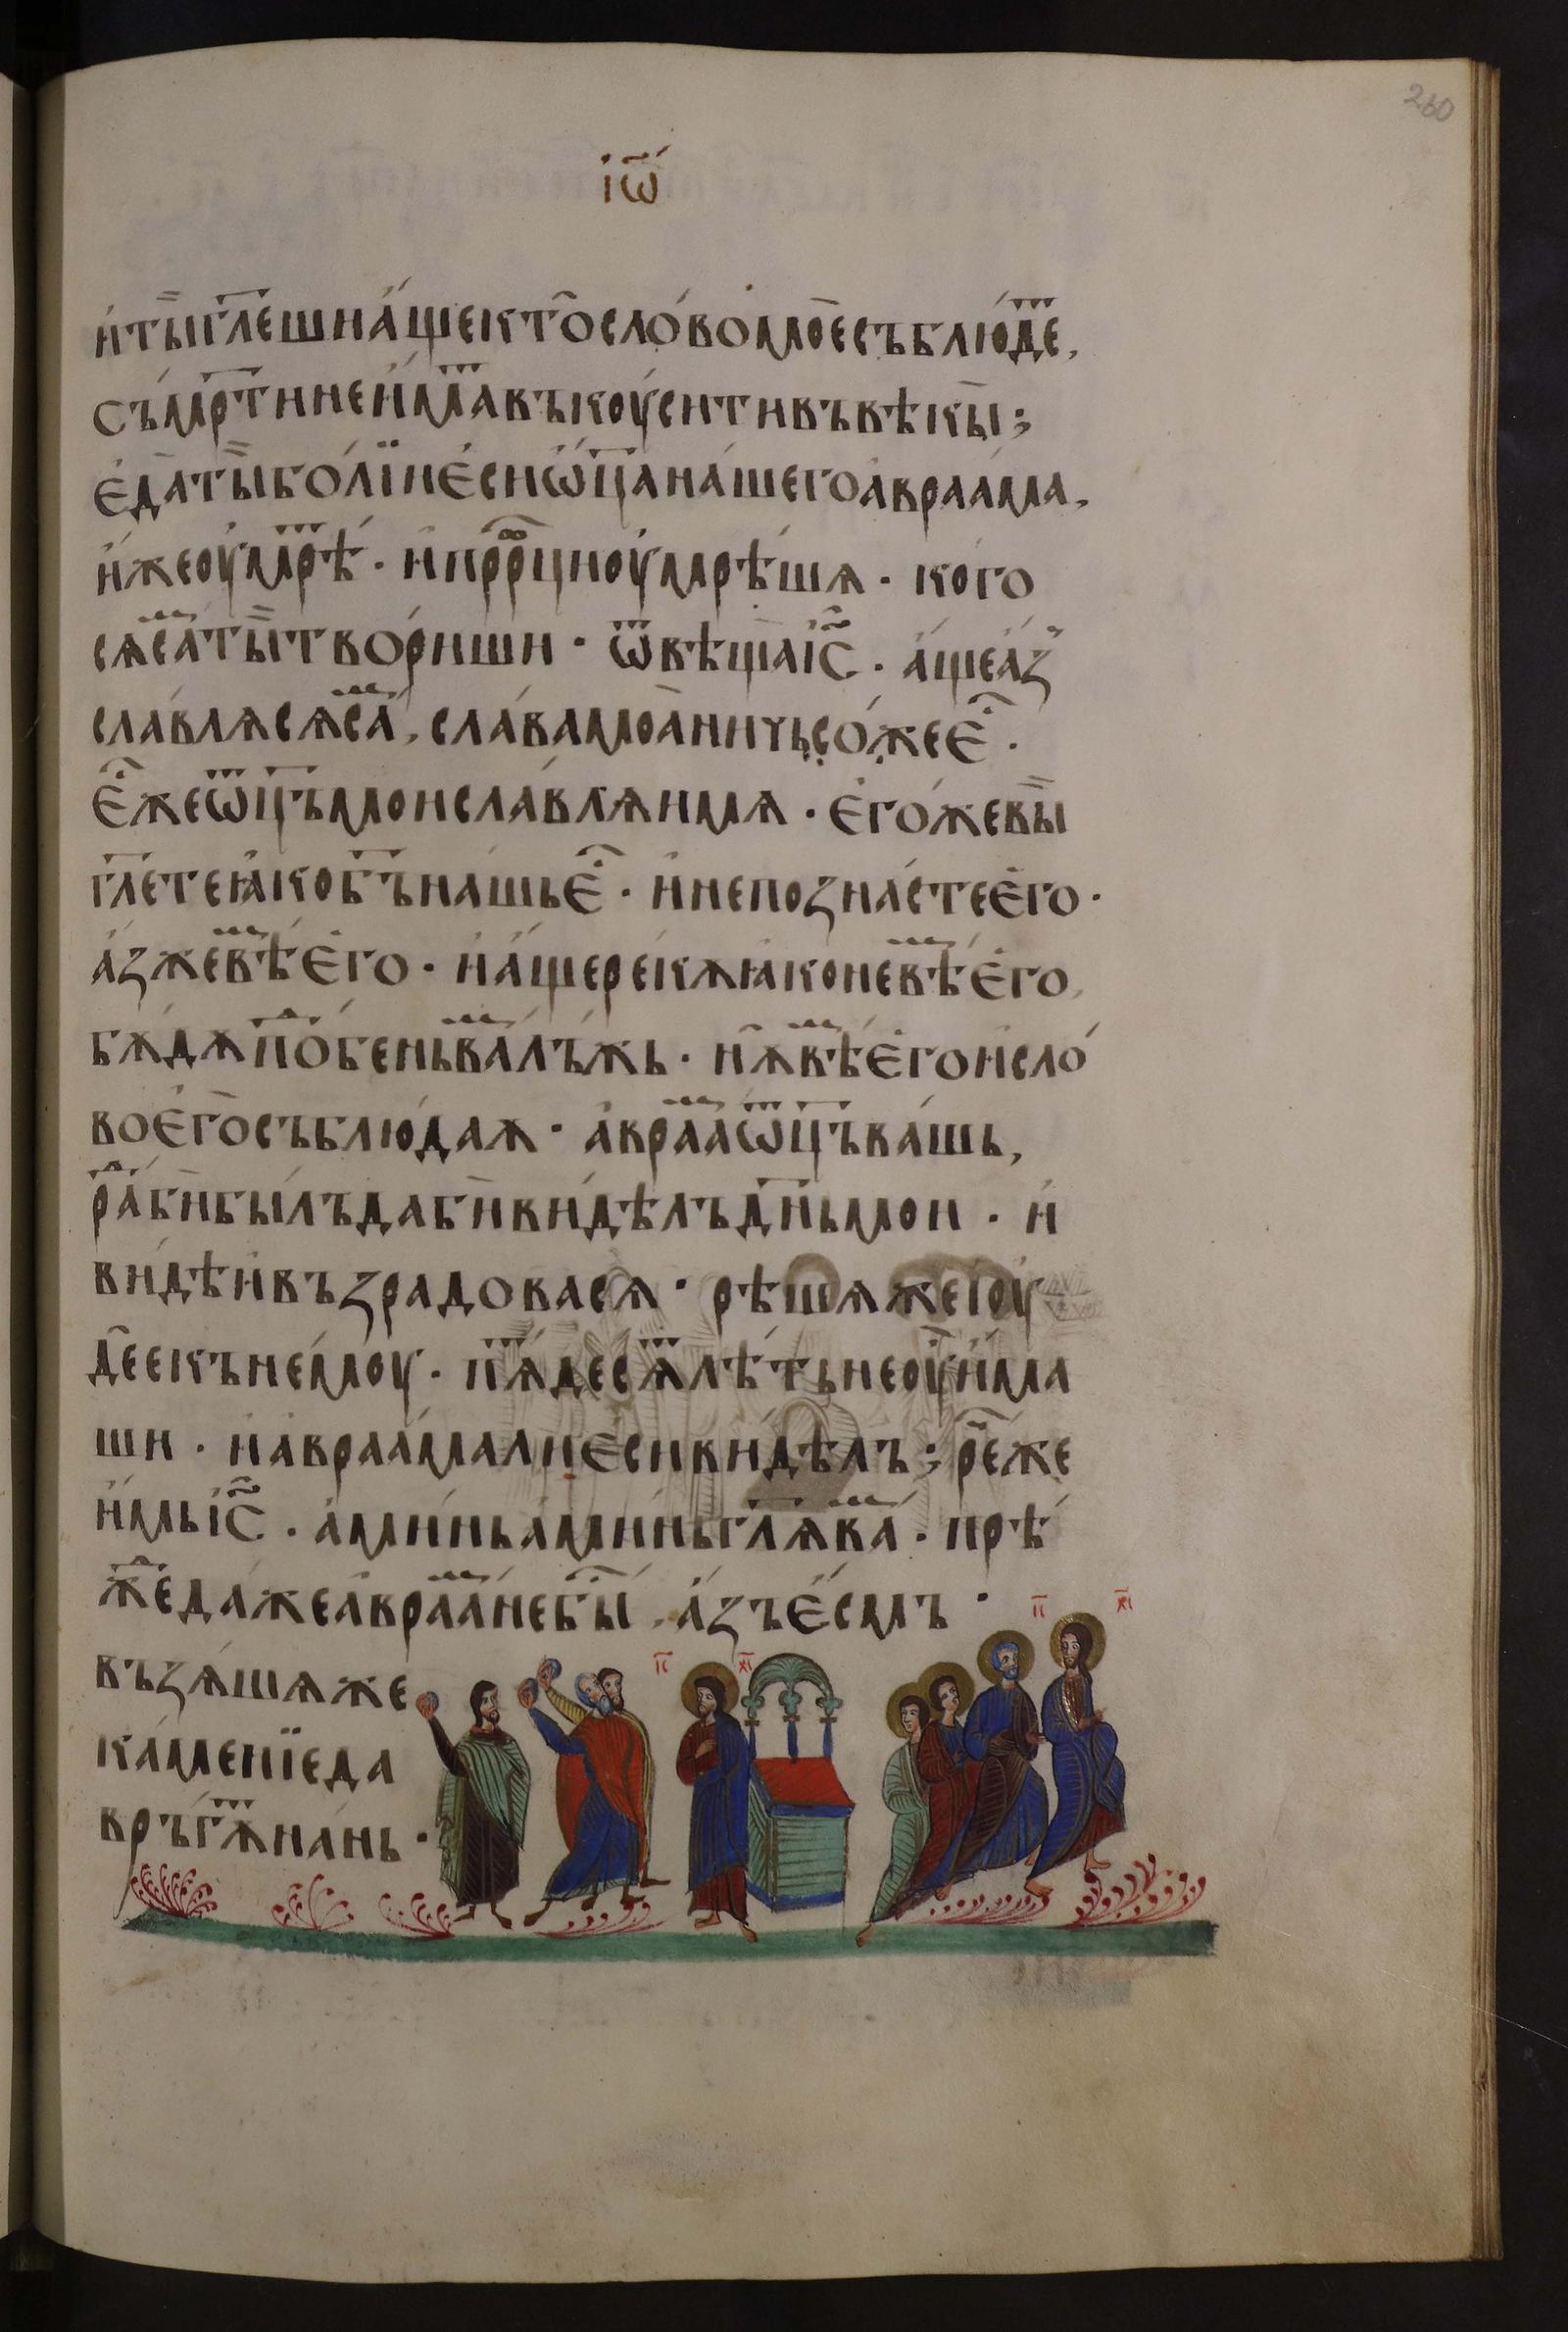 260
і҆ѡ҃
и҆ты̏гл҃ешиа҆́щектѡ̑сло́вомое̏съблю́дⷮе,
съ́мр҃тинеи҆́маⷮвъкоу́ситивъвѣ́кы̏;
є҆да̏ты̏бо́лїиє҆сиѡ҆ц҃ана́шегоа҆враа́ма,
и҆́жеоу҆́мрⷮѣ · и҆прⷪ҇рциоу҆мрѣ́шѧ · кого
сѧса́ⷨты̏тво́риши · ѿвѣ́щаі҆с҃ · а҆́щеа҆́з
сла́влѧсѧса́ⷨ, сла́вамоа̏ничьсо́жеє҆ⷭ҇ ·
є҆ⷭ҇жеѿц҃ъмоисла́влѧимѧ · є҆го́жевы̏
гл҃етеꙗ҆кобг҃ънашьє҆ⷭ҇ · и҆непозна́стеє҆го ·
а҆́зжевѣ́ⷨє҆го · и҆а҆́щерекѫꙗ҆коневѣ́ⷨє҆го,
бѫ́дѫпоⷣ҇беньва́ⷨлъ́жь · нѫ̑вѣ́ⷨє҆гои҆сло́
воє҆го̏съблю́даѫ · а҆враа́ⷨѿц҃ъва́шь,
ра́ⷣби̏бы́лъдаби̏ви́дѣлъдн҃ьмои · и҆
ви́дѣи҆въ́зрадовасѧ · рѣ́шѧжеі҆оу
де̑екънемоу · пѧⷮ́десѧⷮлѣ́тьнеоу҆̀и҆́ма
ши · и҆а҆враа́малиє҆сиви́дѣлъ; ре́ⷱже
и҆́мьі҆с҃ · а҆ми́ньа҆ми́ньгл҃ѧва́ⷨ · прѣ́
жⷣеда́жеа҆враа́ⷨнебы́ⷭ, а҆́зъє҆́смъ ·
възѧ́шѧже
ка́менїеда
връ́гѫⷮна́нь ·
і҃с х҃с
і҃с х҃с